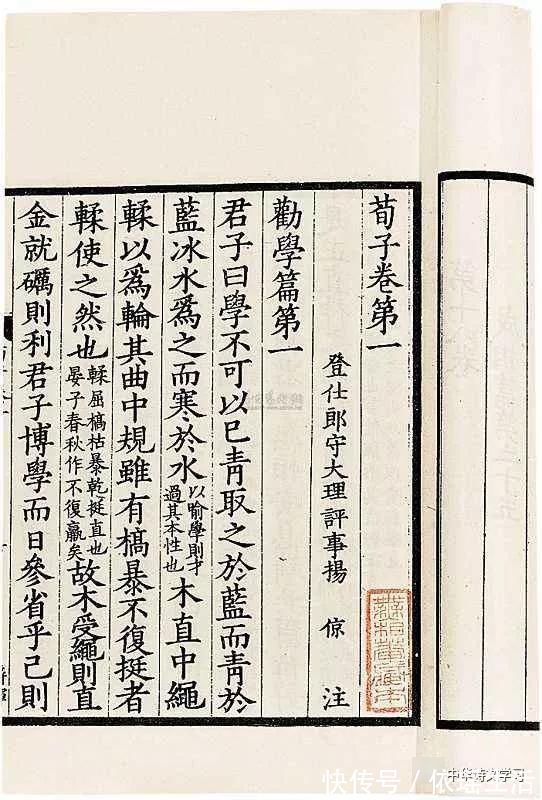 荀子卷第一
登仕郎守大理評事揚 倞 注
勸學篇第一
君子曰學不可以已青取之於藍而青於
藍冰水爲之而寒於水以喻學則才過其本性也木直中繩
輮以爲輪其曲中規雖有槁暴不復挺者
輮使之然也輮屈槁枯暴乾挺直也晏子春秋作不復贏矣故木受繩則直
金就礪則利君子博學而日參省乎己則
中华诗文学习
快传号 / 依瑶生活